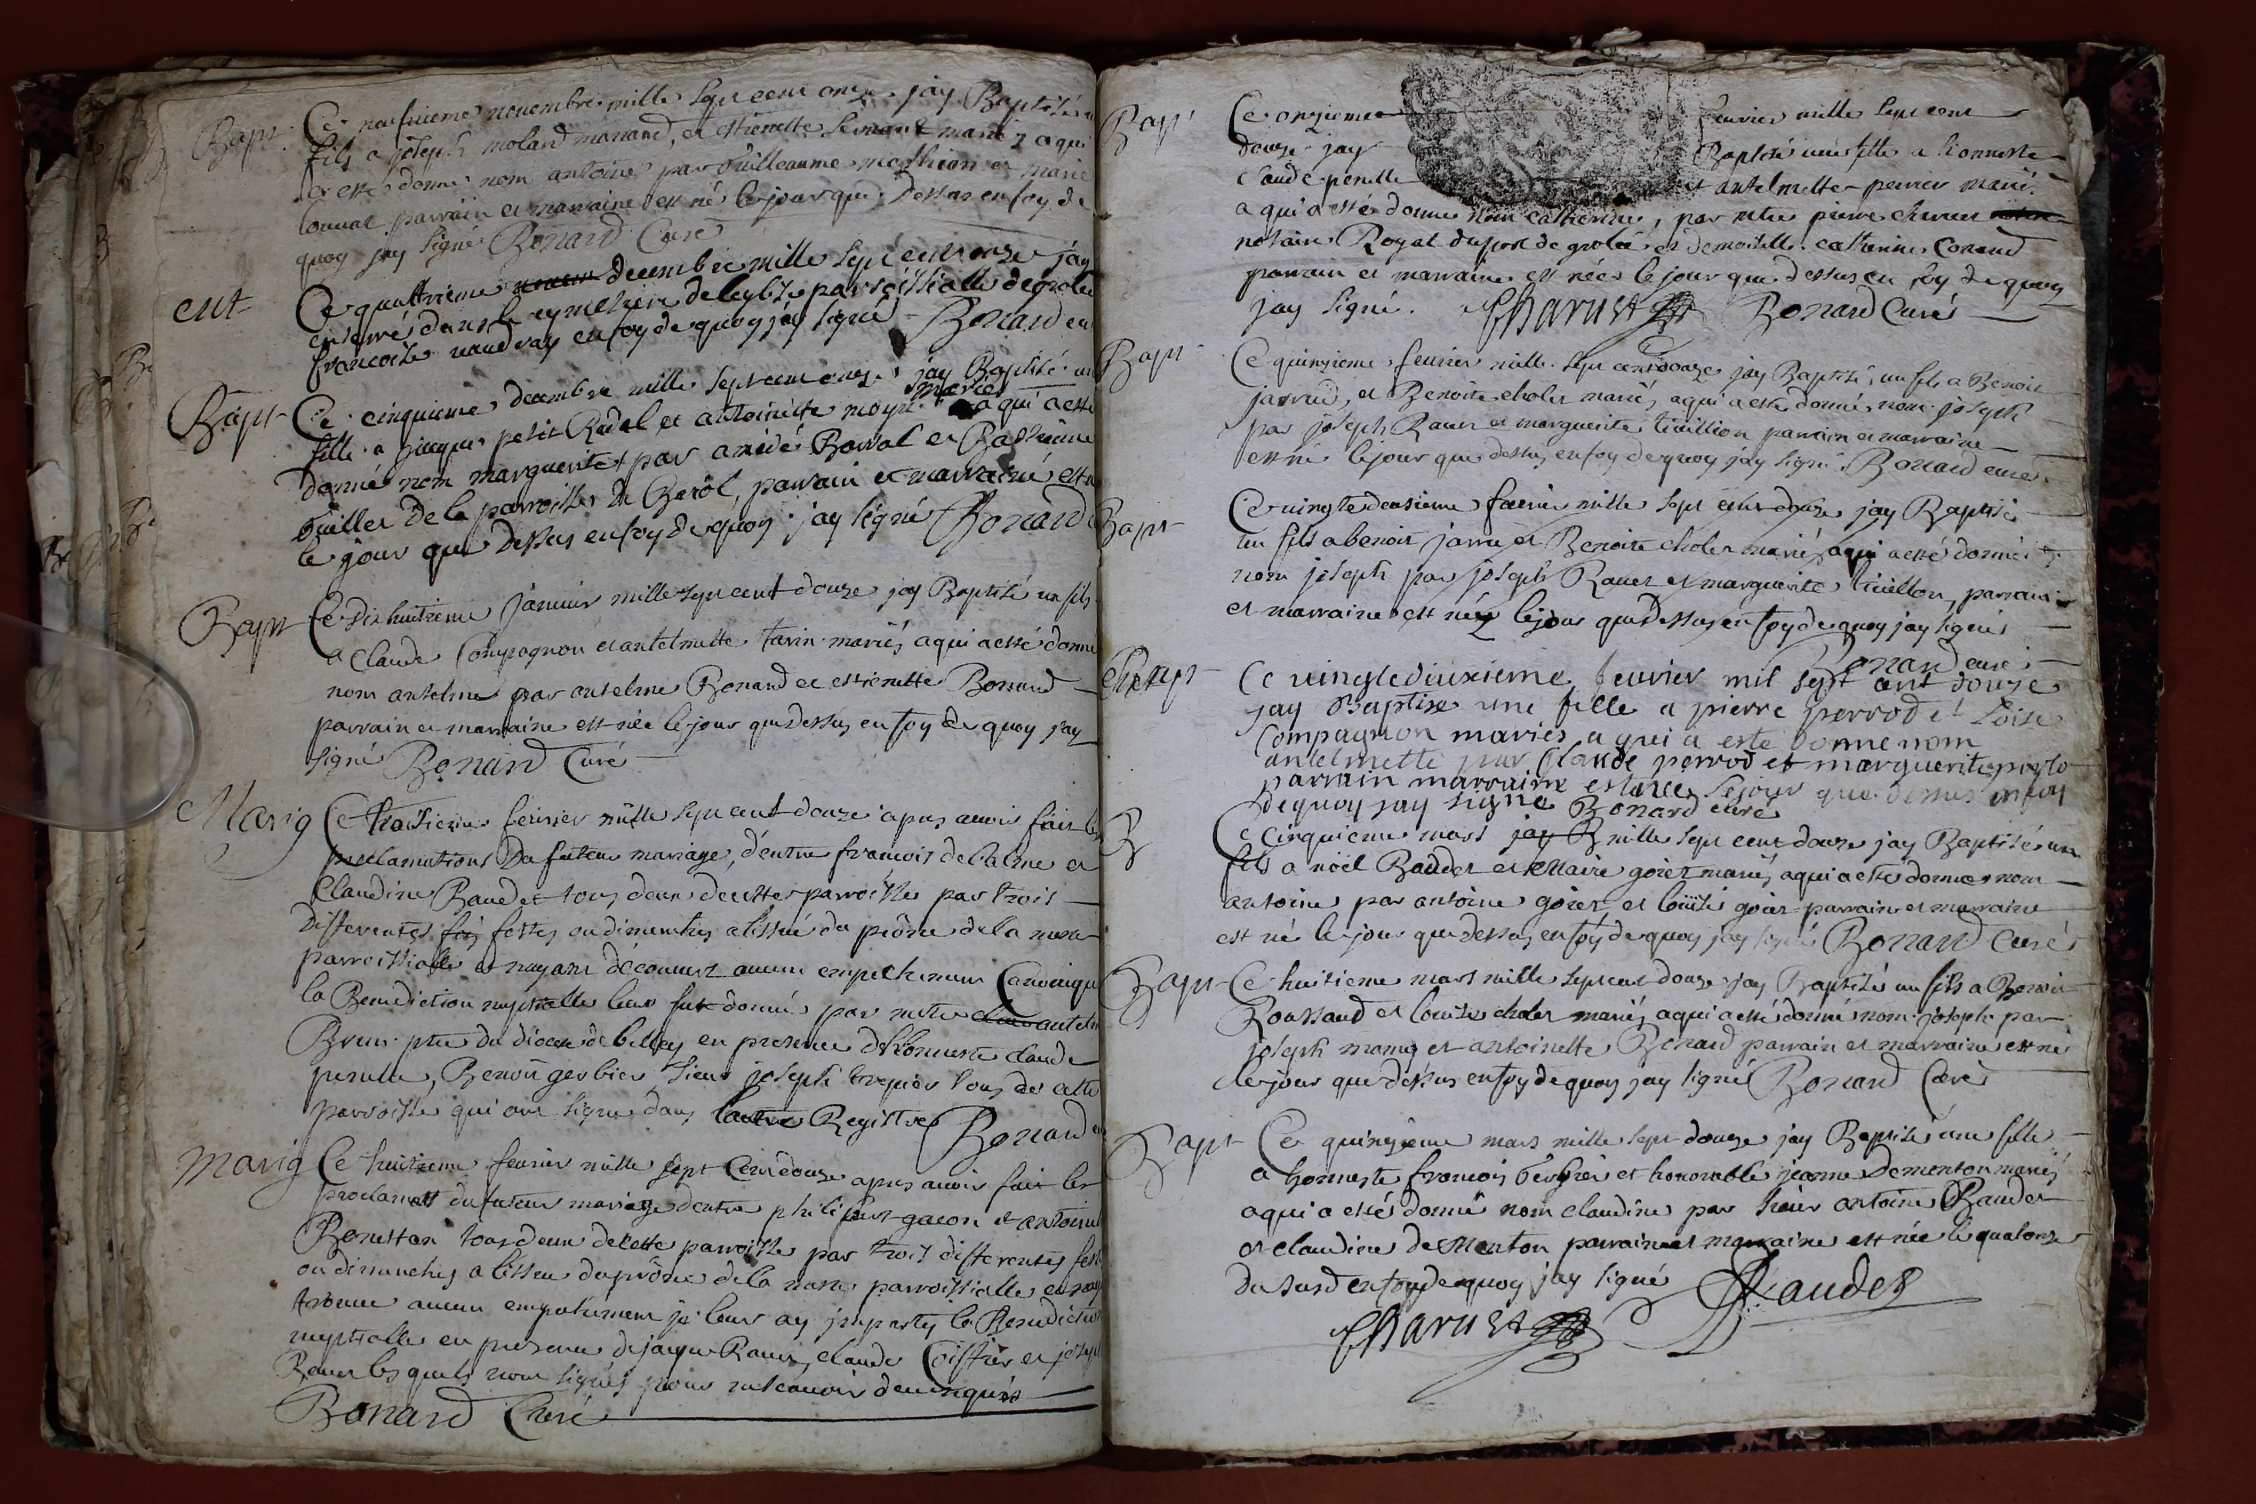 Bapt. Ce neufuieme nouembre mille sept cent onze jay Baptisé un
fils a joseph moland manand, et estienette mariez a qui
a esté donné nom antoine par Guilleaume mathieu et marie
parrain et marraine est né le jour que dessus en foy de
quoy jay signé Bonard Curé
ent Ce quattrieme decembre mille sept cent onze jay
enterrés dans le cymetiere de leglize parroissialle de grolée
francoise naudray en foy de quoy jay signé Bonard cu
Bapt Ce cinquieme decembre mille sept cent onze jay Baptisé un
mariez
fille a jacque petit Rudel et antoinette moyne a qui a esté
donné nom marguerite par amédé Borral et
de la parroisse de parrain et marraine est n
le jour que dessus en foy de quoy jay signé Bonard
Bapt Ce dix huitieme janvier mille sept cent douze jay Baptisé un fils
a Claude Compagnon et antelmette tavin mariés a qui a esté donné
nom antelme par antelme Bonard et estienette Bonard
parrain et marraine est née le jour que dessus en foy de quoy jay
signé Bonard Curé
Marig Ce troisieme feurier mille sept cent douze apres auoir fait les
proclamations du futeur mariage, d'entre francois delalme et
Claudine Baudet tous deux de cette parroisse par trois
differentes fois festes ou dimenches a lissue du prône de la messe
parroissialle et nayant découuert aucun empechement Canonique
la Benediction nuptialle leur fut donné par mtre antelm
Brun ptre du diocese de belley en presence d'honneste claude
perulle, Benoit gerbier, sieur joseph trequier tous de cette
parroisse qui ont signé dans lautre Registre Bonard cu
Marig Ce huitieme feurier mille sept Cent douze apres auoir fait les
proclamatt du futeur mariage dentre philipert gacon et antoine
Bonettan tous deux de cette parroisse par trois differentes fest
ou dimanches a lissue du prône de la messe parroissialle et nay
trouué aucun empechement je leurs ay jmparty la Benediction
nuptialle en presence de jaque Rauer, claude Coiffier et joseph
Rauer les quels nont signés pour ne scauoir de ce enquis
Bonard Curé
Bapt Ce onzieme feurier mille sept cent
douze jay Baptisé une fille a honneste
Claude perulle et antelmette perrier mariés
a qui a esté donné nom catherine, par mtre pierre charuet
notaire Royal du port de grolée et demoiselle catherine Conand
parrain et marraine est née le jour que dessus en foy de quoy
jay signé. Charuet Bonard Curé
Bapt Ce quinzieme feurier mille sept cent douze jay Baptisé un fils a Benoit
jarrud, et Benoite choler mariés a qui a esté donné nom joseph
par joseph Rauer et marguerite tiuillion parrain et marraine
est né le jour que dessus en foy de quoy jay signé Bonard curé
Bapt Ce vingtedeusieme feurier mille sept cent douze jay Baptisé
un fils a benoit jarru et Benoite choler mariés a qui a esté donné
nom joseph par joseph Rauer et marguerite tiuillon, parrain
et marraine est né le jour que dessus en foy de quoy jay signé
Bonard curé
Bapt Ce uingtedeuxieme feurier mil sept cent douze
jay Baptise une fille a pierre perrod et Loise
Compagnon mariés a qui a este donne nom
antelmette par Claude perrod et marguerite
parrain marraine est née le jour que dessus en foy
dequoy jay signe Bonard curé
B Ce cinquieme mars jay B mille sept cent douze jay Baptisé un
fils a noël Baudet et claire goiet mariés a qui a esté donné nom
antoine par antoine goiet et louise goiet parrain et marraine
est né le jour que dessus en foy de quoy jay signé Bonard Curé
Bapt Ce huitieme mars mille sept cent douze jay Baptisé un fils a Benoit
Roussaud et louize choler mariés a qui a esté donné nom joseph par
joseph mamy et antoinette Bonard parrain et marraine est né
le jour que dessus en foy de quoy jay signé Bonard Curé
Bapt Ce quinzieme mars mille sept douze jay Baptisé une fille
a honneste francois et honorable jeanne Dementon mariés
a qui a esté donné nom claudine par sieur antoine Baudet
et claudine de Menton parrain et marraine est née le quatorze
du susd en foy de quoy jay signé Baudet
Charuet